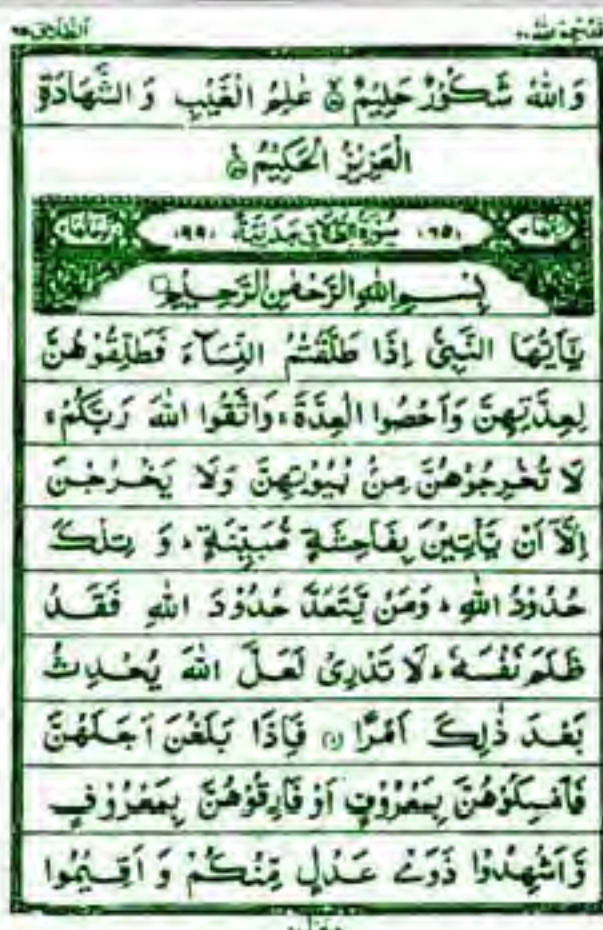 قد سمع الله ٢٨ الطلاق ٦٥
وَاللّٰهُ شَكُوْرٌ حَلِيْمٌ ۝ عٰلِمُ الْغَيْبِ وَ الشَّهَادَةِ
الْعَزِيْزُ الْحَكِيْمُ ۝
(٦٥) سُوْرَةُ الطَّلَاقِ مَدَنِيَّةٌ (٩٩)
بِسْمِ اللّٰهِ الرَّحْمٰنِ الرَّحِيْمِ
يٰٓاَيُّهَا النَّبِيُّ اِذَا طَلَّقْتُمُ النِّسَآءَ فَطَلِّقُوْهُنَّ
لِعِدَّتِهِنَّ وَاَحْصُوا الْعِدَّةَ ۚ وَاتَّقُوا اللّٰهَ رَبَّكُمْ ۚ
لَا تُخْرِجُوْهُنَّ مِنْۢ بُيُوْتِهِنَّ وَلَا يَخْرُجْنَ
اِلَّآ اَنْ يَّاْتِيْنَ بِفَاحِشَةٍ مُّبَيِّنَةٍ ۚ وَ تِلْكَ
حُدُوْدُ اللّٰهِ ۚ وَمَنْ يَّتَعَدَّ حُدُوْدَ اللّٰهِ فَقَدْ
ظَلَمَ نَفْسَهٗ ۚ لَا تَدْرِيْ لَعَلَّ اللّٰهَ يُحْدِثُ
بَعْدَ ذٰلِكَ اَمْرًا ۝ فَاِذَا بَلَغْنَ اَجَلَهُنَّ
فَاَمْسِكُوْهُنَّ بِمَعْرُوْفٍ اَوْ فَارِقُوْهُنَّ بِمَعْرُوْفٍ
وَّاَشْهِدُوْا ذَوَيْ عَدْلٍ مِّنْكُمْ وَ اَقِيْمُوا